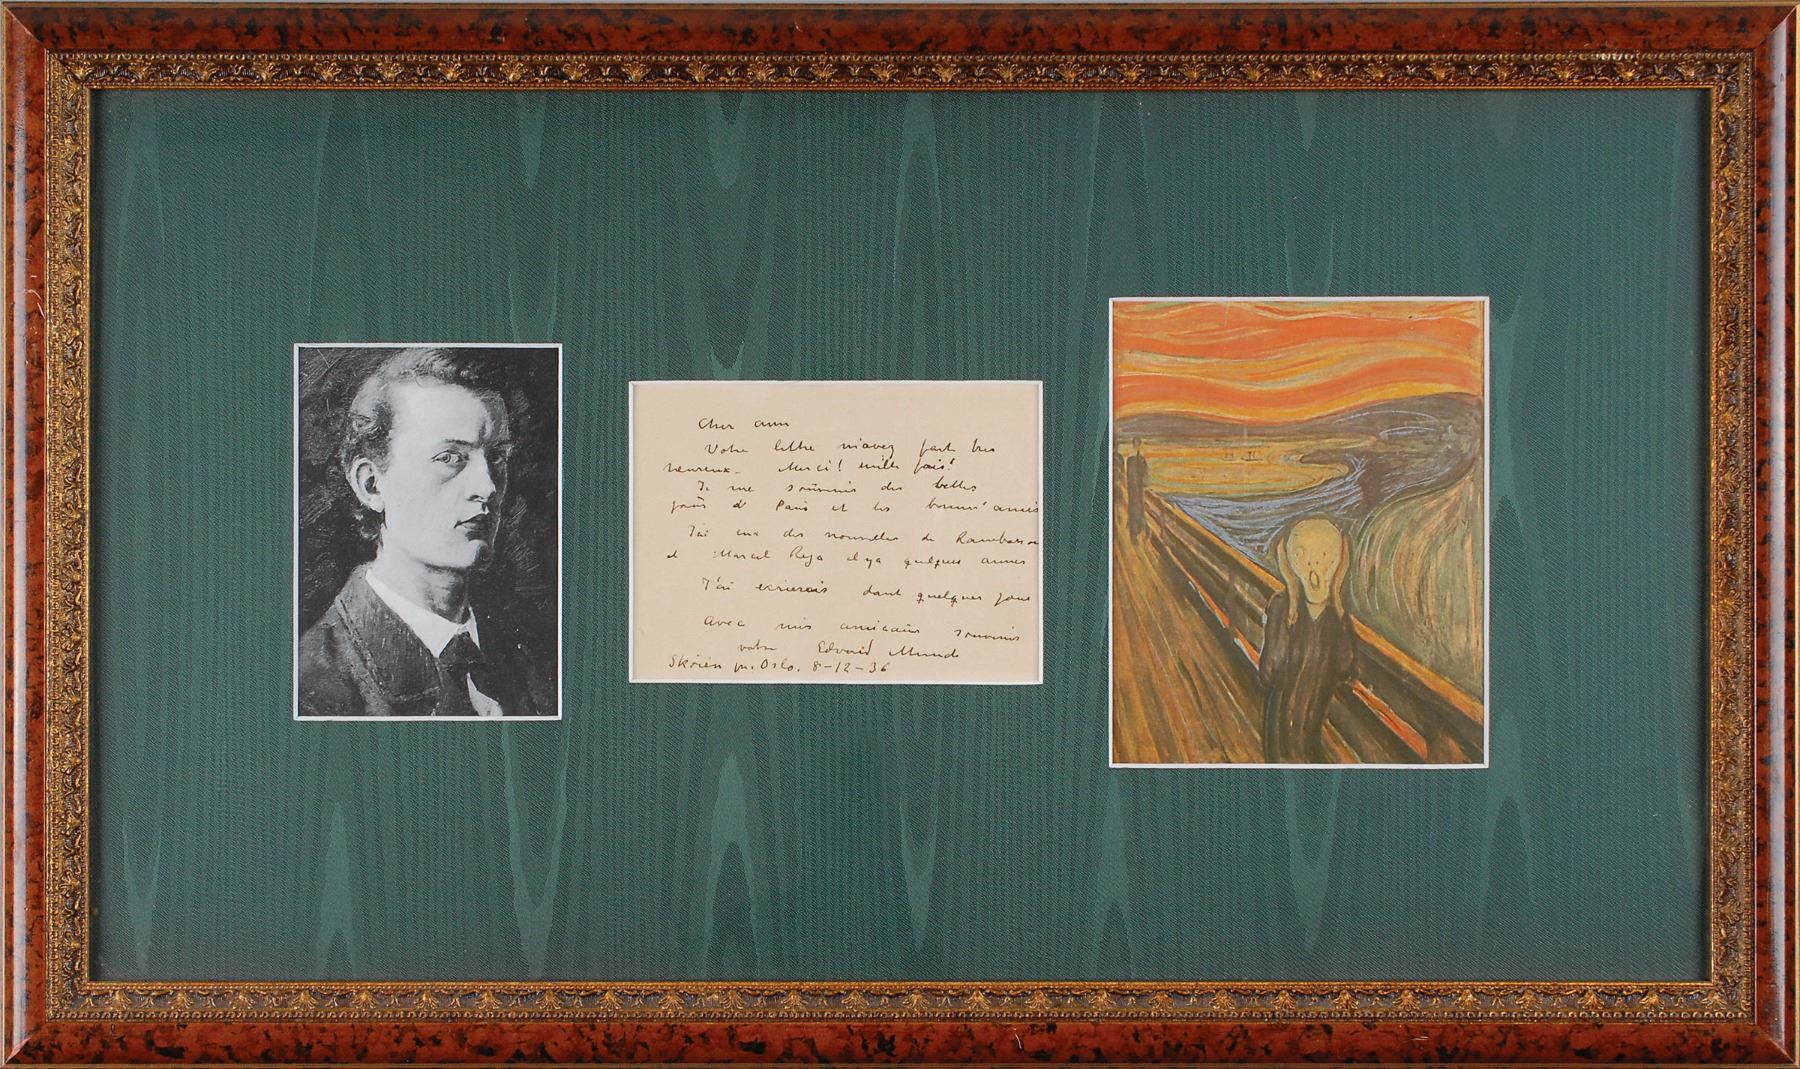 Cher ami
Votre lettre m'avez fait tres
heureux - Merci! mille fois!
Je me souvenis des belles
jours d' Paris et les bonnes amis
J'ai eux des nouvelles de Rambosson
et Marcel Reja il ya quelques annes
J'ai ecrierais dant quelques jous
Avec mes amicaux souvenirs
votre Edvard Munch
Skøien pr. Oslo. 8-12-36